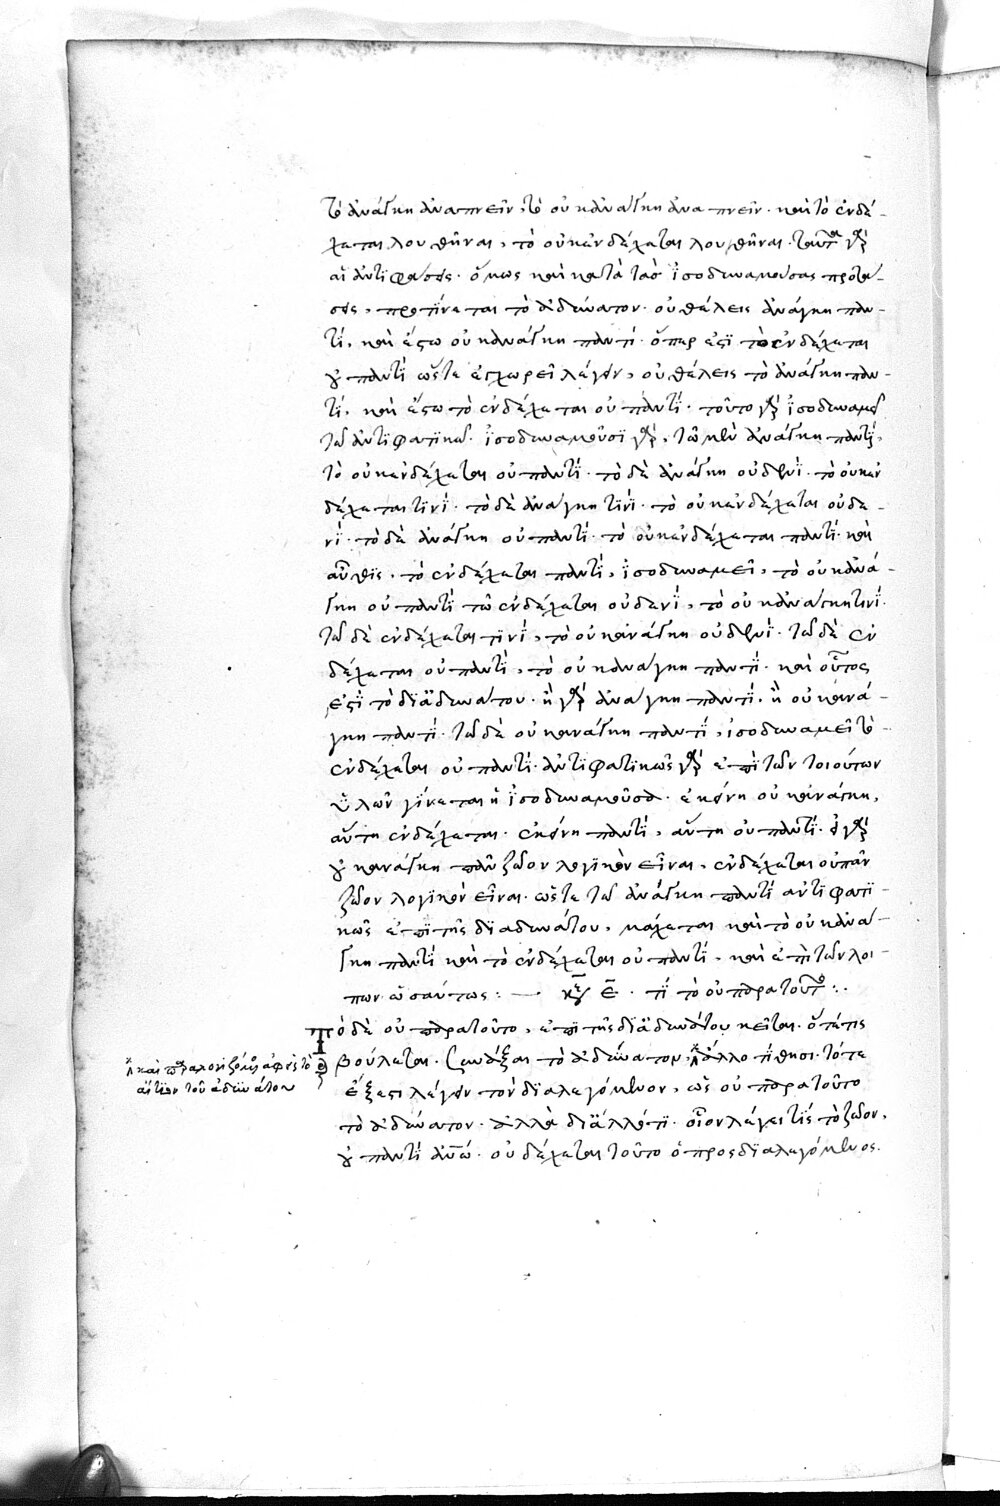 τὸ ἀνάγκη ἀναπνεῖν, τὸ οὐκ ἀνάγκη ἀναπνεῖν· καὶ τὸ ἐνδέ-
χεται λουθῆναι, τὸ οὐκ ἐνδέχεται λουθῆναι· ταῦτα γὰρ
αἱ ἀντιφάσεις· ὅμως καὶ κατὰ τὰς ἰσοδυναμούσας προτά-
σεις, προτείνεται τὸ ἀδύνατον· οὐ θέλεις ἀνάγκη παν-
τί, καὶ ἔστω οὐκ ἀνάγκη παντί· ὅπερ ἐστὶ τὸ ἐνδέχεται
οὐ παντί ὥστε ἐγχωρεῖ λέγειν, οὐ θέλεις τὸ ἀνάγκη παν-
τί, καὶ ἔστω τὸ ἐνδέχεται οὐ παντί· τοῦτο γὰρ ἰσοδυναμεῖ
τῶ ἀντιφατικῶ· ἰσοδυναμοῦσι γὰρ, τῶ μὲν ἀνάγκη παντί,
τὸ οὐκ ἐνδέχεται οὐ παντί· τὸ δὲ ἀνάγκη οὐδενί· τὸ οὐκ ἐν
δέχεται τινί· τὸ δὲ ἀνάγκη τινί· τὸ οὐκ ἐνδέχεται οὐδε-
νί· τὸ δὲ ἀνάγκη οὐ παντί· τὸ οὐκ ἐνδέχεται παντί· καὶ
αὖθις· τὸ ἐνδέχεται παντί, ἰσοδυναμεῖ, τὸ οὐκ ἀνά-
γκη οὐ παντί τῶ ἐνδέχεται οὐδενί, τὸ οὐκ ἀνάγκη τινί·
τῶ δὲ ἐνδέχεται τινί, τὸ οὐκ ἀνάγκη οὐδενί· τῶ δὲ ἐν
δέχεται οὐ παντί, τὸ οὐκ ἀνάγκη παντί· καὶ οὗτος
ἐστὶ τὸ δι' ἀδυνάτου· ἢ γὰρ ἀνάγκη παντί· ἢ οὐκ ἀνά-
γκη παντί· τῶ δὲ οὐκ ἀνάγκη παντί, ἰσοδυναμεῖ τὸ
ἐνδέχεται οὐ παντί· ἀντιφατικῶς γὰρ ἐπὶ τῶν τοιούτων
ὑλῶν γίνεται ἡ ἰσοδυναμοῦσα· ἐκείνη οὐκ ἀνάγκη,
αὕτη ἐνδέχεται· ἐκείνη παντί, αὕτη οὐ παντί· εἰ γὰρ
οὐκ ἀνάγκη πᾶν ζῶον λογικὸν εἶναι, ἐνδέχεται οὐ πᾶν
ζῶον λογικὸν εἶναι· ὥστε τῶ ἀνάγκη παντί ἀντιφατι-
κῶς ἐπὶ τῆς δι' ἀδυνάτου, μάχεται καὶ τὸ οὐκ ἀνά-
γκη παντί καὶ τὸ ἐνδέχεται οὐ παντί· καὶ ἐπὶ τῶν λοι-
πῶν ὡσαύτως:
Τί τὸ οὐ παρὰ τοῦτο:
Τὸ δὲ οὐ παρὰ τοῦτο, ἐπὶ τῆς δι' ἀδυνάτου κεῖται· ὅτε τις
βούλεται συνάξαι τὸ ἀδύνατον, ἄλλο τι θήσει· τότε
ἔξεστι λέγειν τὸν διαλεγόμενον, ὡς οὐ παρὰ τοῦτο
τὸ ἀδύνατον· ἀλλὰ δι' ἄλλό τι· οἷον λέγει τίς τὸ ζῶον,
οὐ παντί ἀνω· οὐ δέχεται τοῦτο ὁ προσδιαλεγόμενος·
αἴτιον τοῦ ἀδυνάτου